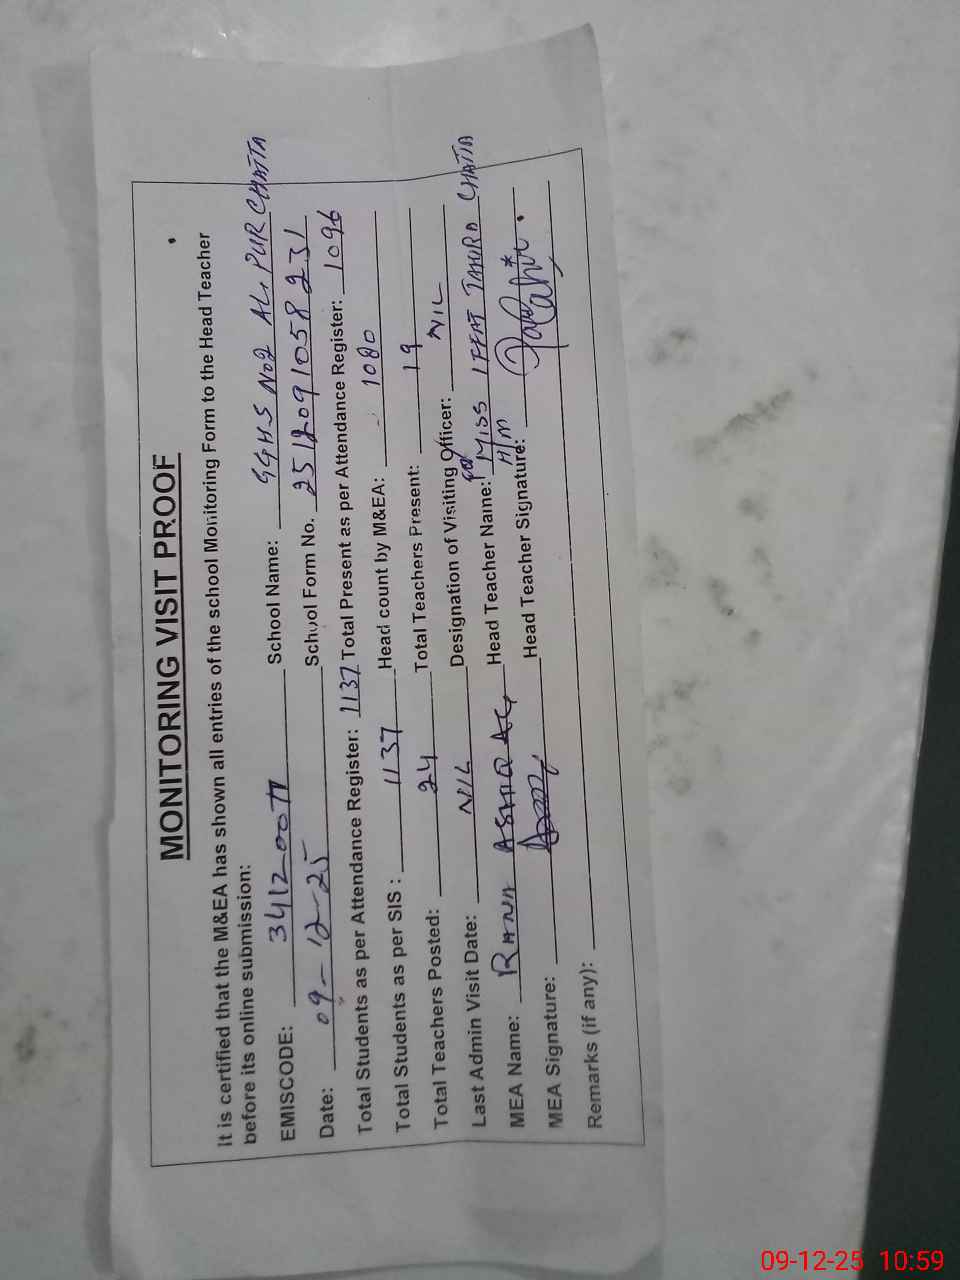 MONITORING VISIT PROOF
It is certified that the M&EA has shown all entries of the school Monitoring Form to the Head Teacher
before its online submission:
EMISCODE: 34120077 School Name: GGHS No2 ALI PUR CHATTA
Date: 09-12-25 School Form No. 2512091058231
Total Students as per Attendance Register: 1137 Total Present as per Attendance Register: 1096
Total Students as per SIS : 1137 Head count by M&EA: 1080
Total Teachers Posted: 24 Total Teachers Present: 19
Last Admin Visit Date: NIL Designation of Visiting Officer: NIL
MEA Name: RANA ASHQ ALI Head Teacher Name: MISS IFFAT CHATTA
H/M
MEA Signature: Head Teacher Signature:
Remarks (if any):
09-12-25 10:59